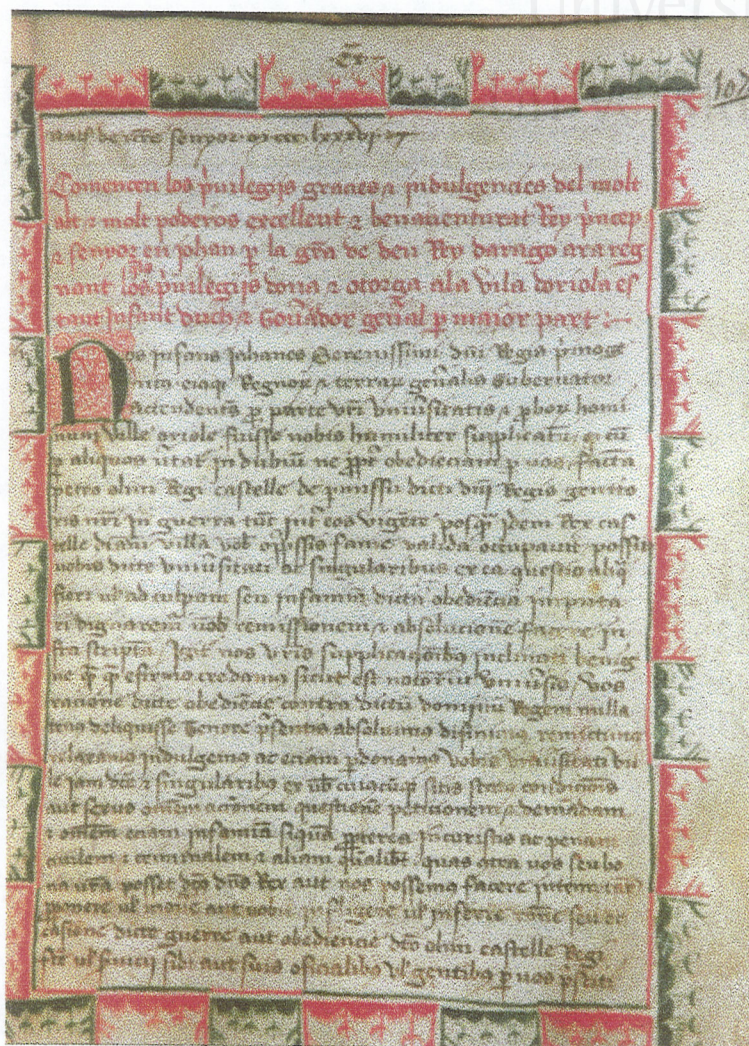 Univers
cx
107
nats de nre senyor m ccc lxxxvj
Comencen los priuilegijs gracies & indulgencies del molt
alt & molt poderos excellent & benauenturat Rey princep
& senyor en johan p la gra de deu Rey darago ara reg
nant los priuilegijs dona & otorga ala vila doriola es
tant jnfant duch & Gouernador general p maior part :—
Nos jnfans johanes Serenissimi dni Regis primoge
nitus eiusq Regnor & terrar generalis Gubernator
Attendentes p parte vri vniuersitatis & pbor homi
num ville oriole fuisse nobis humiliter supplicatu q cu
p aliquos vertat in dubiu ne ppt obedienciam p vos facta
petro olim Regi castelle de pmissu dicti dni Regis genito
ris nri in guerra tuc int eos vigete posq jdem Rex cas
telle dcam villa vob oppssis fame valida occupauit possit
vobis dicte vniuersitati ac singularibus ex ea questio aliq
fieri vl ad culpam seu infamiam dicta obediencia imputa
ri dignarem vob remissionem & absolucione facere in
fra scripta. Igit nos vris supplicacoibus inclinati benig
ne q q firmo credamus sicut est notoriu vniuerso vos
racione dicte obediencie contra dictu dominu Regem nulla
tenus deliquisse Tenore psentis absoluimus difinimus remittimus
relaxamus indulgemus ac eciam pdonamus vobis vniuersitati vil
le jam dce & singularibus ex vob cuiuscuq sitis status condicionis
aut sexus omnem accionem questione peticionem & demandam
& omem eciam infamia siqua ppterea incurristis ac penam
ciuilem & criminalem & aliam qlibet quas contra vos seu bo
na vra posset dns Rex aut nos possemus facere intemtare
pponere vl mouere aut vobis infligere vl inferre racione seu oc
casione dicte guerre aut obediencie dco olim castelle Regi
fce vl seruicij sibi aut suis oficialibus vl gentibus p vos pstiti